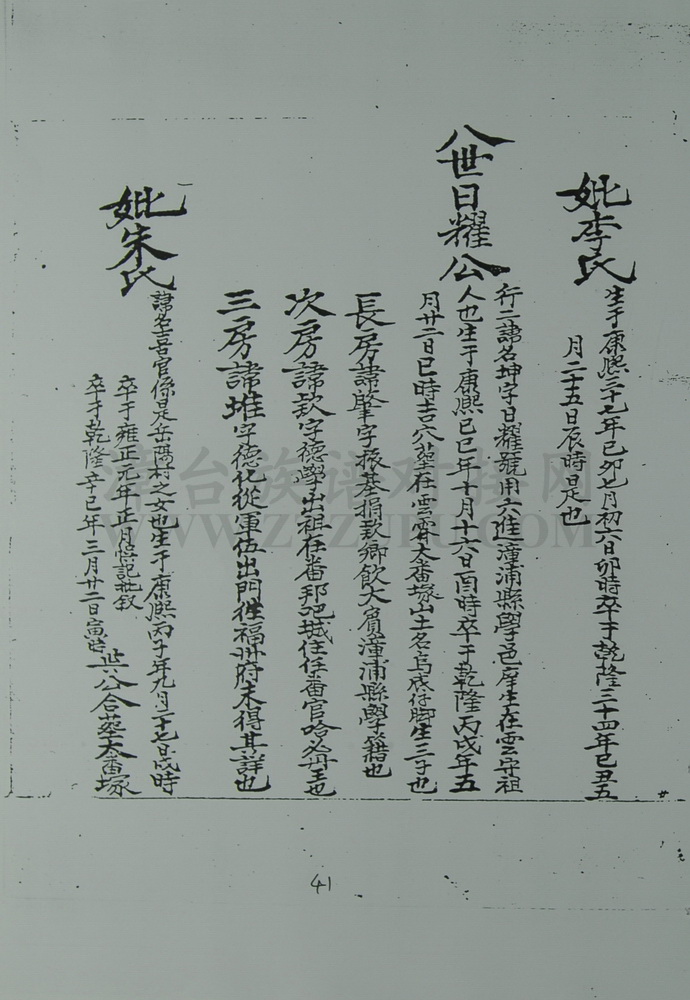 妣李氏
生于康熙三十七年己卯七月初六日卯時卒于乾隆三十四年己丑五
月二十五日辰時是也
八世日耀公
行二諱名坤字日耀號用六進漳浦縣學邑庠生在雲守祖
人也生于康熙己巳年十月十六日酉時卒于乾隆丙戌年五
月廿二日巳時吉穴塟在雲霄大番塚山土名烏戍仔脚生三子也
長房諱肇字振基捐欵鄉飲大賓漳浦縣學籍也
次房諱欽字德學出祖在番邦吧城住任番官哈必丹王也
三房諱堆字德化從軍伍出門徃福州府未得其詳也
妣朱氏
諱名喜官係是岳隅村之女也生于康熙丙子年九月二十七日戌時
卒于雍正元年正月
卒于乾隆辛巳年三月廿二日寅時
與公合葬大番塚
41
漳台族谱对接网
WWW.ZTZUPU.COM